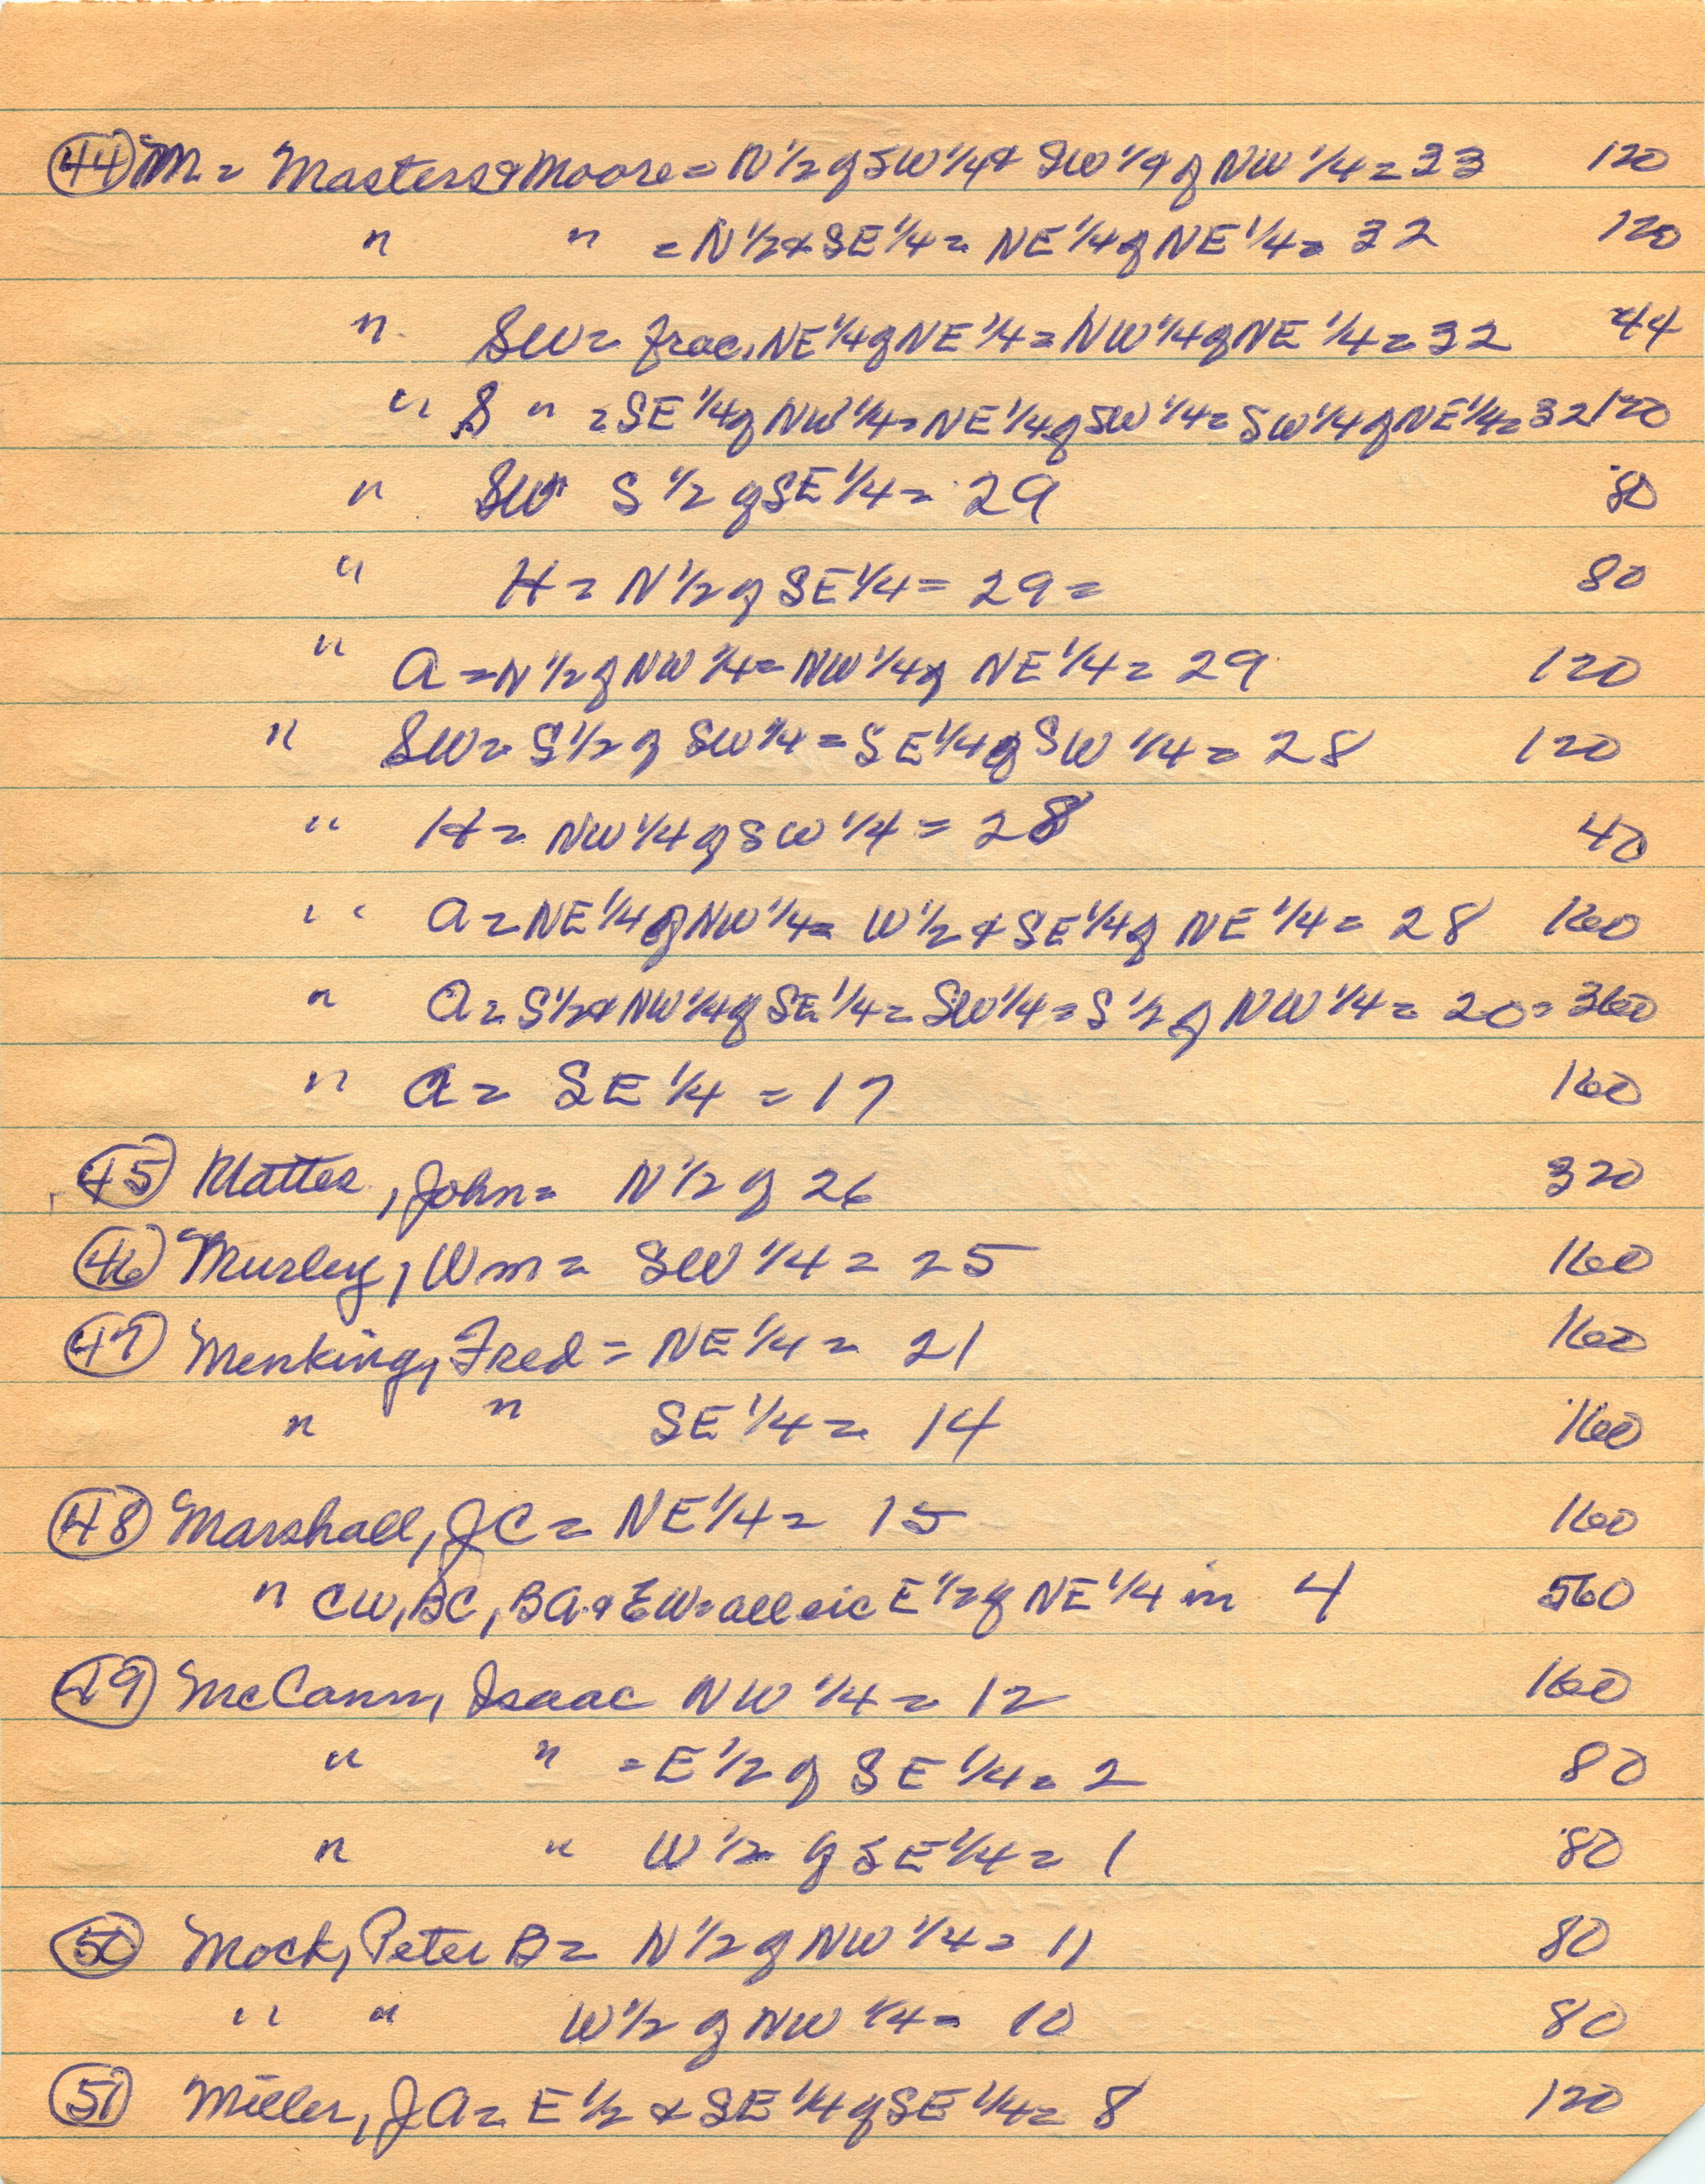 (44) M = Masters & Moore = N 1/2 of SW 1/4 & SW 1/4 of NW 1/4 = 33 120
" " = N 1/2 & SE 1/4 = NE 1/4 of NE 1/4 = 32 120
" SW = frac, NE 1/4 of NE 1/4 = NW 1/4 of NE 1/4 = 32 44
" S " = SE 1/4 of NW 1/4 = NE 1/4 of SW 1/4 = SW 1/4 of NE 1/4 = 32 120
" SW " S 1/2 of SE 1/4 = 29 80
" H = N 1/2 of SE 1/4 = 29 = 80
" A = N 1/2 of NW 1/4 = NW 1/4 of NE 1/4 = 29 120
" SW = S 1/2 of SW 1/4 = SE 1/4 of SW 1/4 = 28 120
" H = NW 1/4 of SW 1/4 = 28 40
" A = NE 1/4 of NW 1/4 = W 1/2 & SE 1/4 of NE 1/4 = 28 160
" A = S 1/2 & NW 1/4 of SE 1/4 = SW 1/4 = S 1/2 of NW 1/4 = 20 = 360
" A = SE 1/4 = 17 160
(45) , John = N 1/2 of 26 320
(46) Murley, Wm = SW 1/4 = 25 160
(47) Menking, Fred = NE 1/4 = 21 160
" " SE 1/4 = 14 160
(48) Marshall, JC = NE 1/4 = 15 160
" CW, BC, BA & EW = all E 1/2 of NE 1/4 in 4 560
(49) McCann, Isaac NW 1/4 = 12 160
" " = E 1/2 of SE 1/4 = 2 80
" " W 1/2 of SE 1/4 = 1 80
(50) Mock, Peter B = N 1/2 of NW 1/4 = 11 80
" " W 1/2 of NW 1/4 = 10 80
(51) Miller, JA = E 1/2 & SE 1/4 of SE 1/4 = 8 120